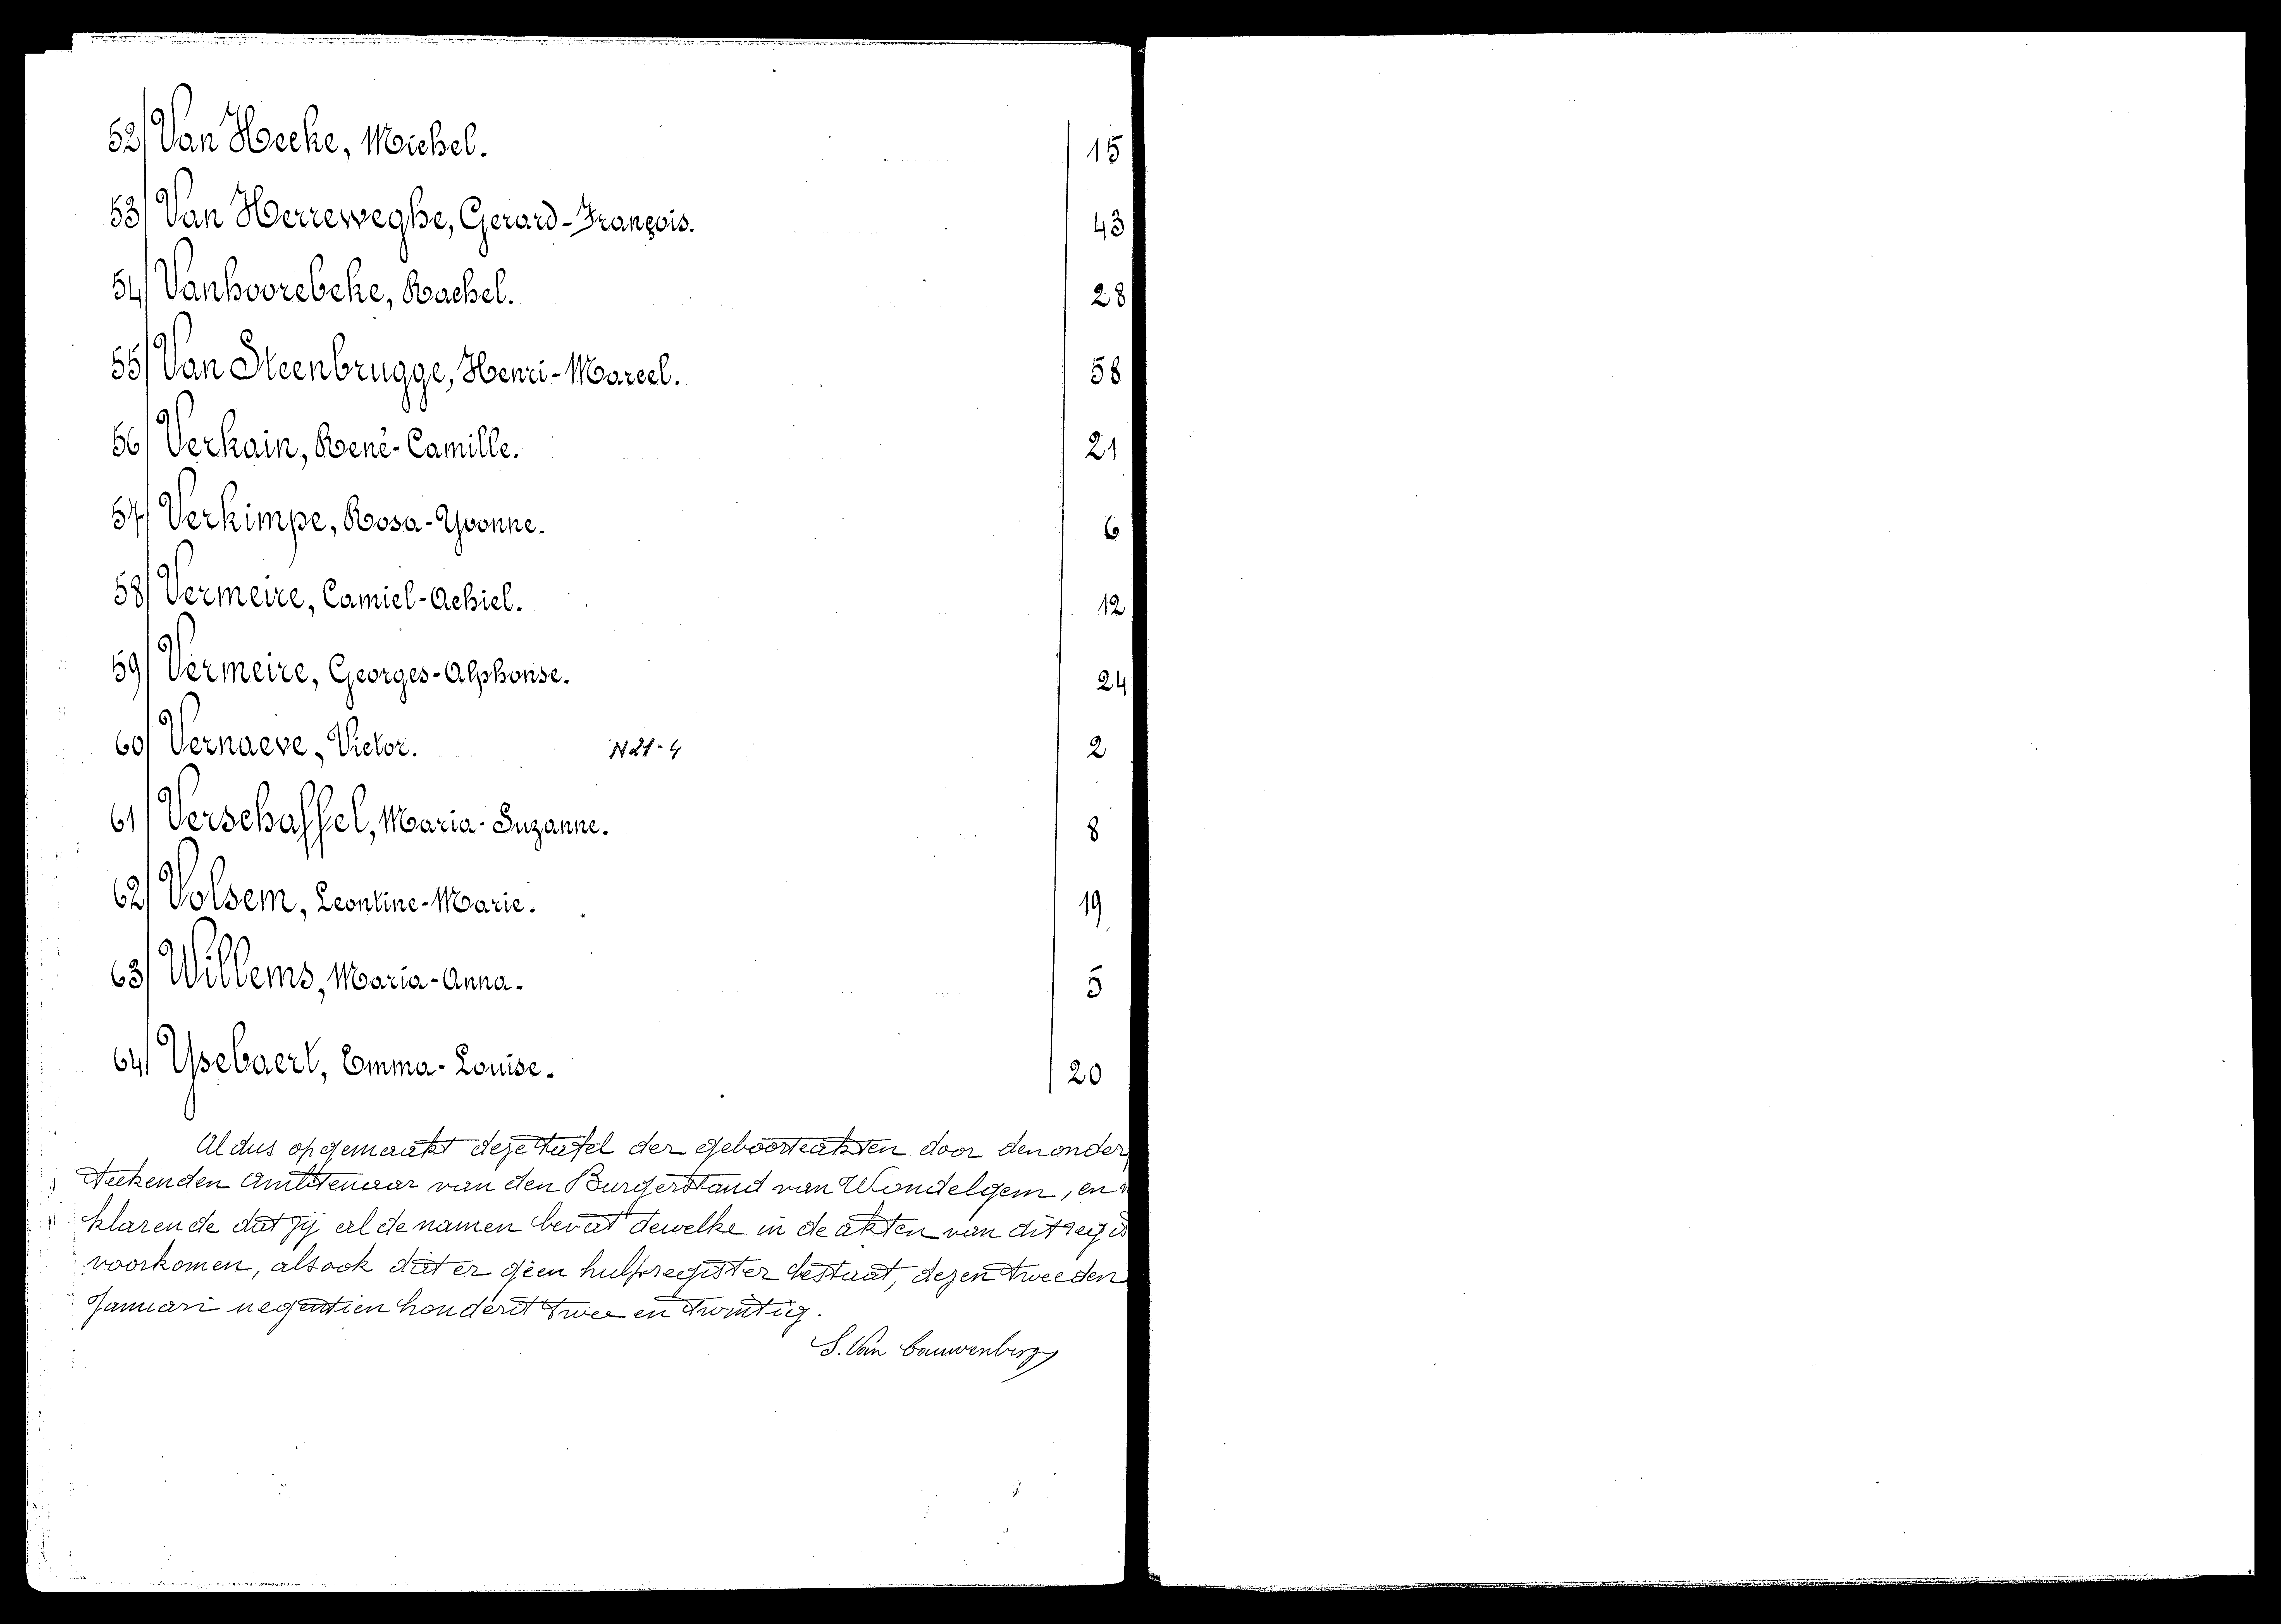 52/ Van Hecke, Michel. 15
53/ Van Herreweghe, Gerard-François. 43
54/ Vanhoorebeke, Rachel. 28
55/ Van Steenbrugge, Henri-Marcel. 58
56/ Verkain, René-Camille. 21
57/ Verkimpe, Rosa-Yvonne. 6
58/ Vermeire, Camiel-Achiel. 12
59/ Vermeire, Georges-Alphonse. 24
60/ Vernaeve, Victor. 2
61/ Verschaffel, Maria-Suzanne. 8
62/ Volsem, Leontine-Marie. 19
63/ Willems, Maria-Anna. 5
64/ Ysebaert, Emma-Louise. 20
Aldus opgemaakt deze tafel der geboorteakten door den onder
teekenden Ambtenaar van den Burgerstand van Wondelgem, en
klarende dat zij al de namen bevat dewelke in de akten van dit regis
voorkomen, alsook dat er geen hulpregister bestaat, dezen tweeden
Januari negentien honderd twee en twintig.
S. Van Cauwenberg